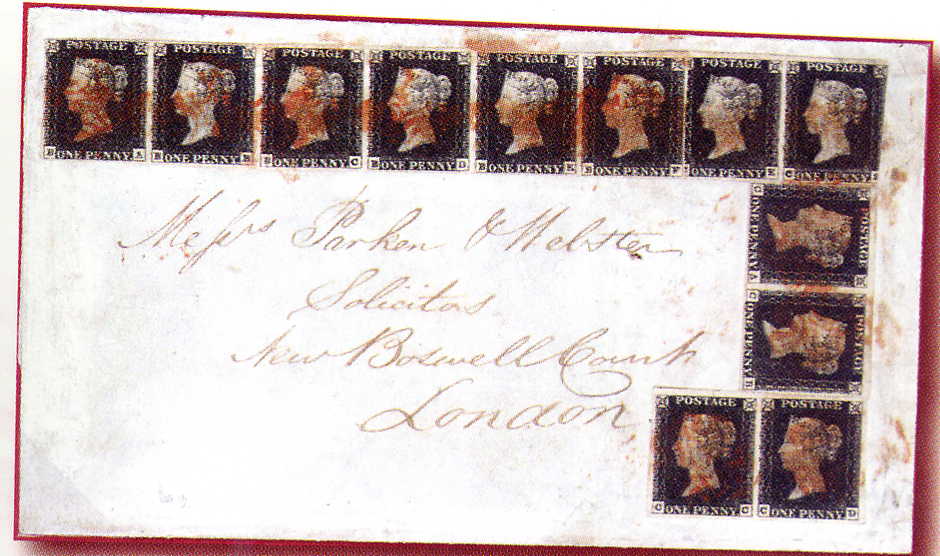 POSTAGE POSTAGE POSTAGE POSTAGE POSTAGE POSTAGE POSTAGE POSTAGE
B ONE PENNY A B ONE PENNY B B ONE PENNY C B ONE PENNY D B ONE PENNY E ONE PENNY F ONE PENNY E C ONE PENNY
Messrs Parken & Webster
Solicitors
New Boswell Court
London
POSTAGE
C ONE PENNY A
POSTAGE
C ONE PENNY B
POSTAGE POSTAGE
C ONE PENNY C C ONE PENNY D